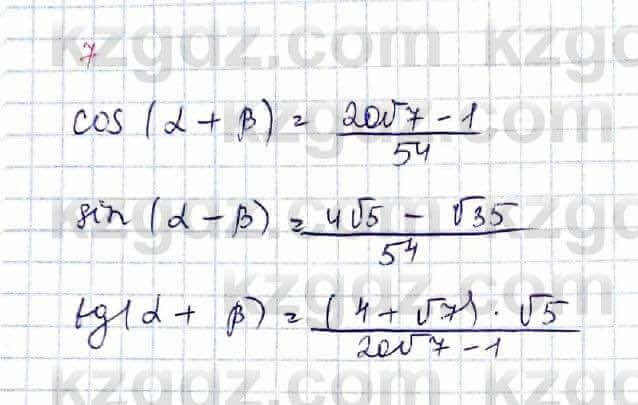 kzgdz.com
7
cos (α + β) = (20√7 - 1)/54
sin (α - β) = (4√5 - √35)/54
tg(α + β) = ((4 + √7) · √5)/(20√7 - 1)